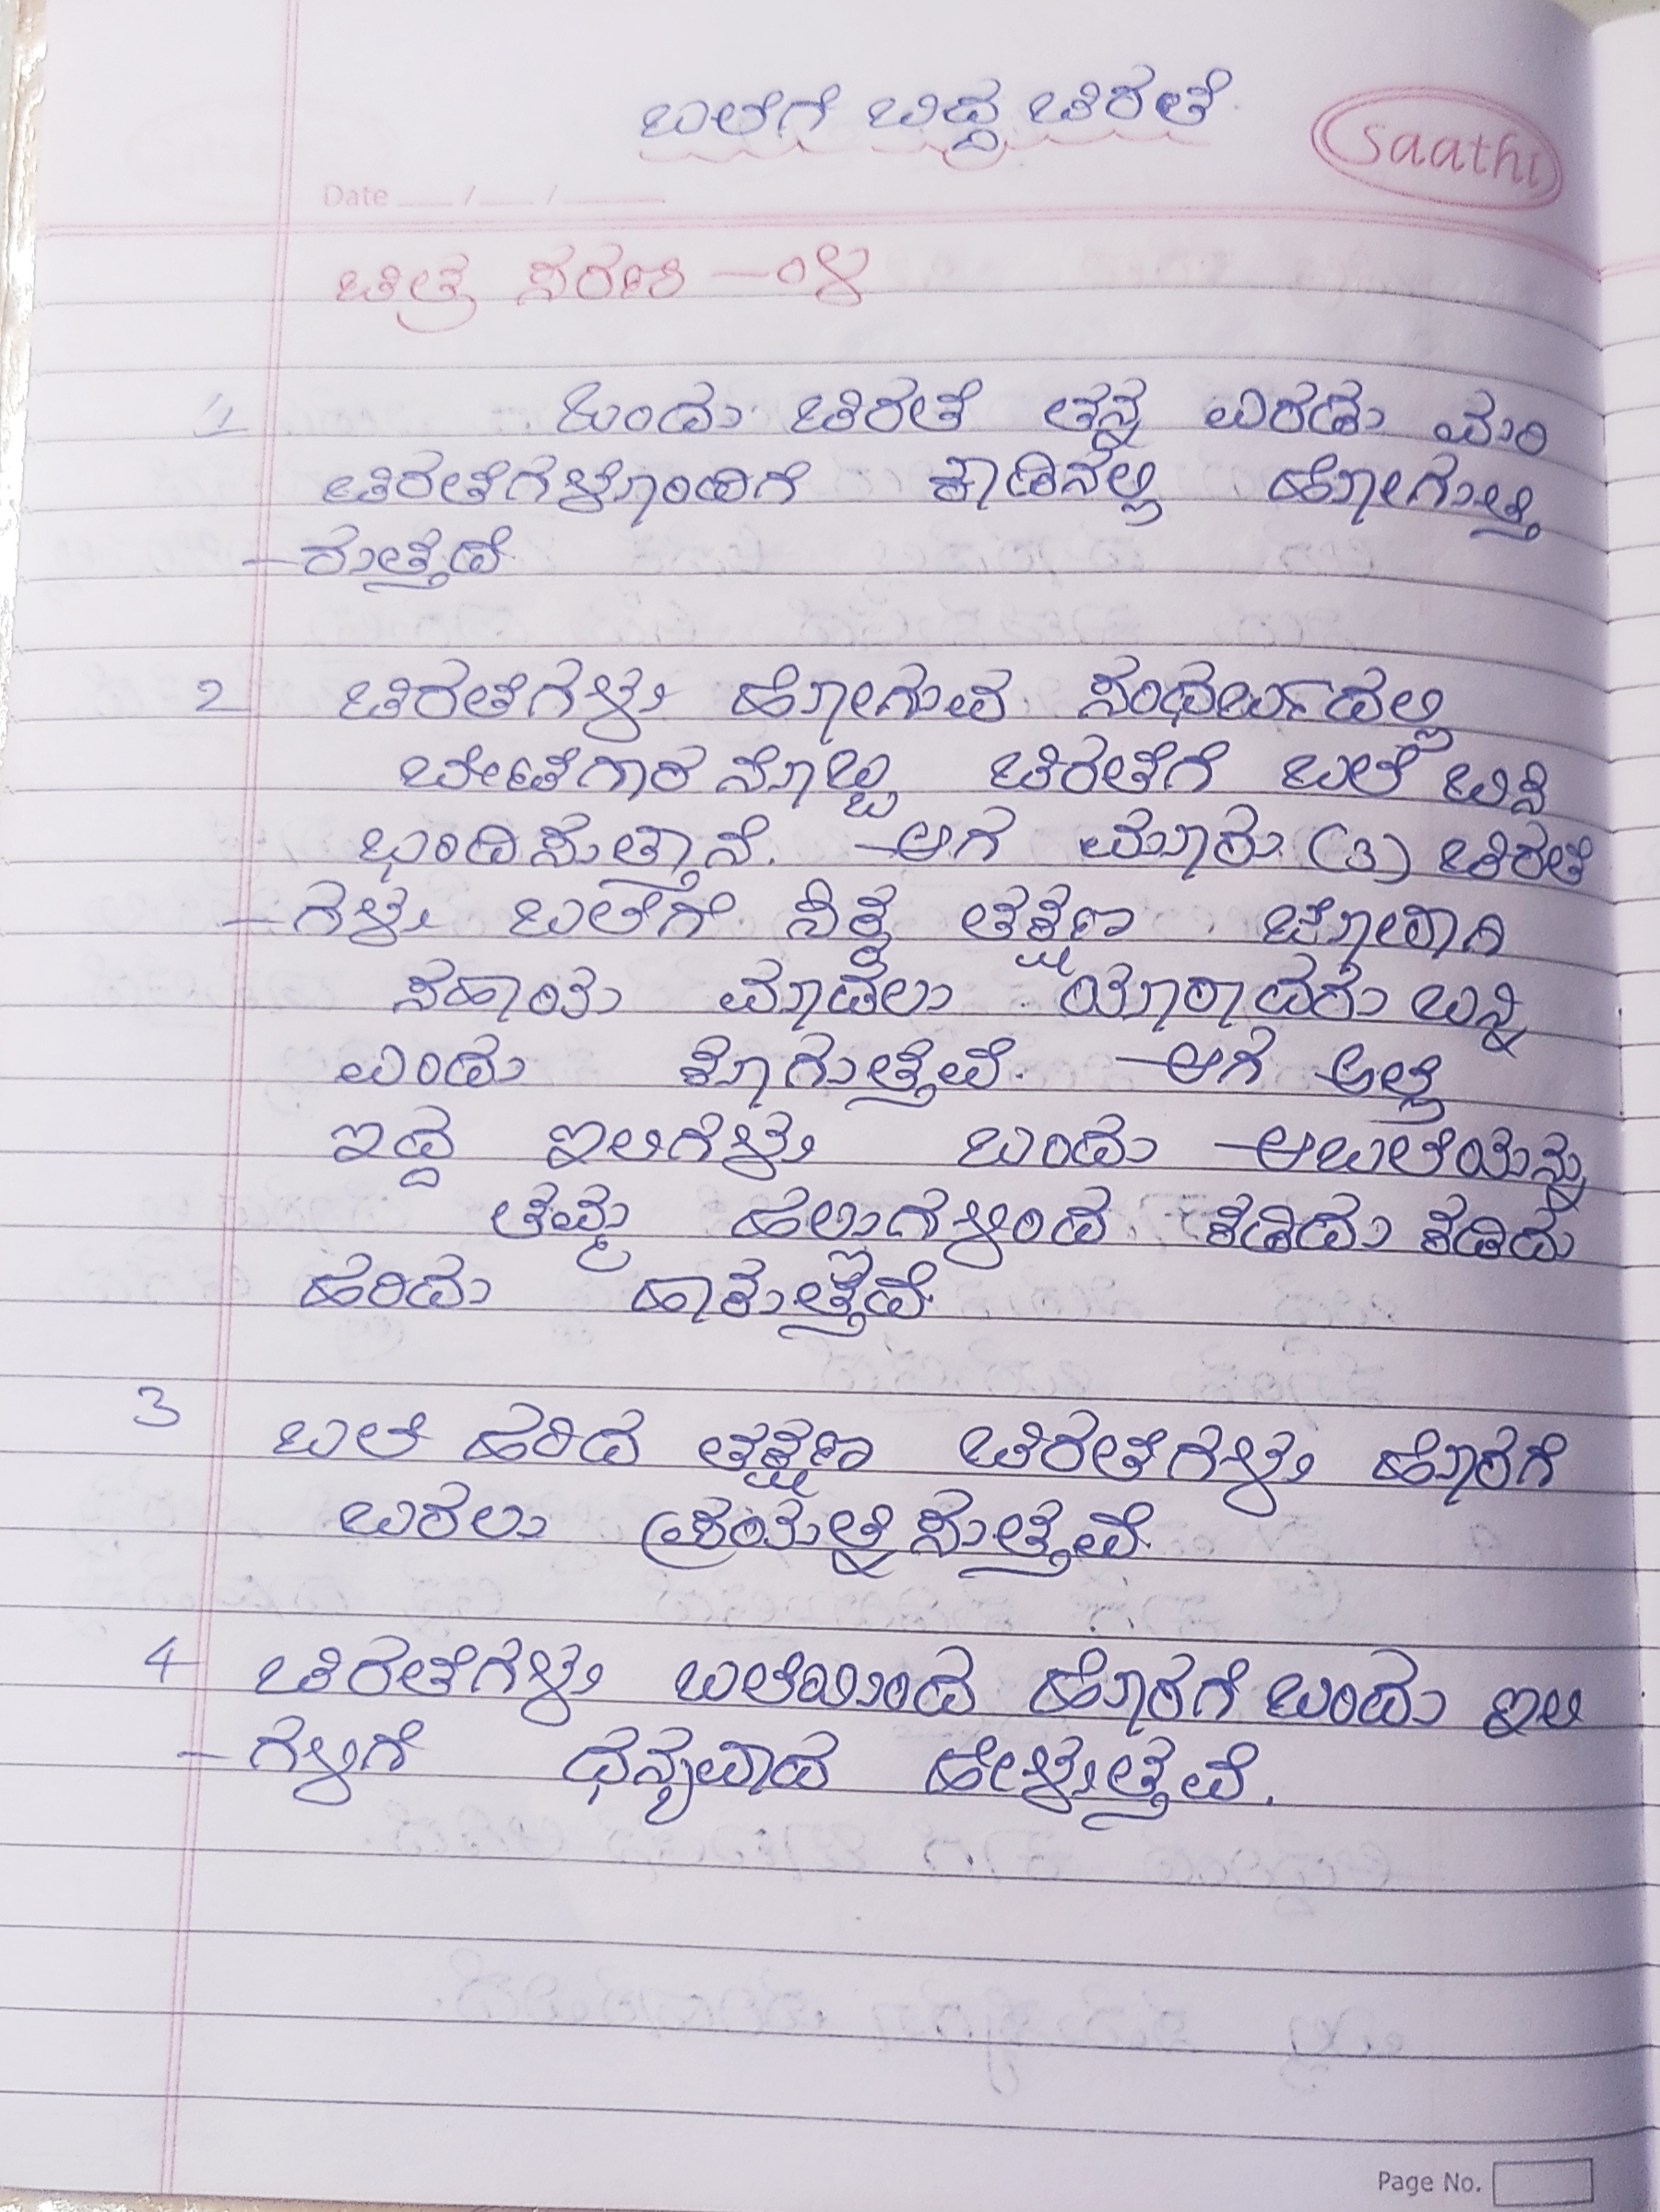 ಬಲೆಗೆ ಬಿದ್ದ ಚಿರತೆ
saathi
Date __/__/____
ಚಿತ್ರ ಸರಣಿ -೦೪
1 ಒಂದು ಚಿರತೆ ತನ್ನ ಎರಡು ಮರಿ
ಚಿರತೆಗಳೊಂದಿಗೆ ಕಾಡಿನಲ್ಲಿ ಹೋಗುತ್ತಿ
-ರುತ್ತದೆ.
2 ಚಿರತೆಗಳು ಹೋಗುವ ಸಂಧರ್ಬದಲ್ಲಿ
ಬೇಟೆಗಾರನೊಬ್ಬ ಚಿರತೆಗೆ ಬಲೆ ಬಿಸಿ
ಭಂದಿಸುತ್ತಾನೆ. ಆಗ ಮೂರು (3) ಚಿರತೆ
-ಗಳು ಬಲೆಗೆ ಸಿಕ್ಕ ತಕ್ಷಣ ಜೋರಾಗಿ
ಸಹಾಯ ಮಾಡಲು ಯಾರಾದರು ಬನ್ನಿ
ಎಂದು ಕೂಗುತ್ತವೆ. ಆಗ ಅಲ್ಲಿ
ಇದ್ದ ಇಲಿಗಳು ಬಂದು ಆಬಲೆಯನ್ನು
ತಮ್ಮ ಹಲ್ಲುಗಳಿಂದ ಕಡಿದು ಕಡಿದು
ಹರಿದು ಹಾಕುತ್ತವೆ.
3 ಬಲೆ ಹರಿದ ತಕ್ಷಣ ಚಿರತೆಗಳು ಹೊರಗೆ
ಬರಲು ಪ್ರಯತ್ನಿಸುತ್ತವೆ.
4 ಚಿರತೆಗಳು ಬಲೆಯಿಂದ ಹೊರಗೆ ಬಂದು ಇಲಿ
-ಗಳಿಗೆ ಧನ್ಯವಾದ ಹೇಳುತ್ತವೆ.
Page No.